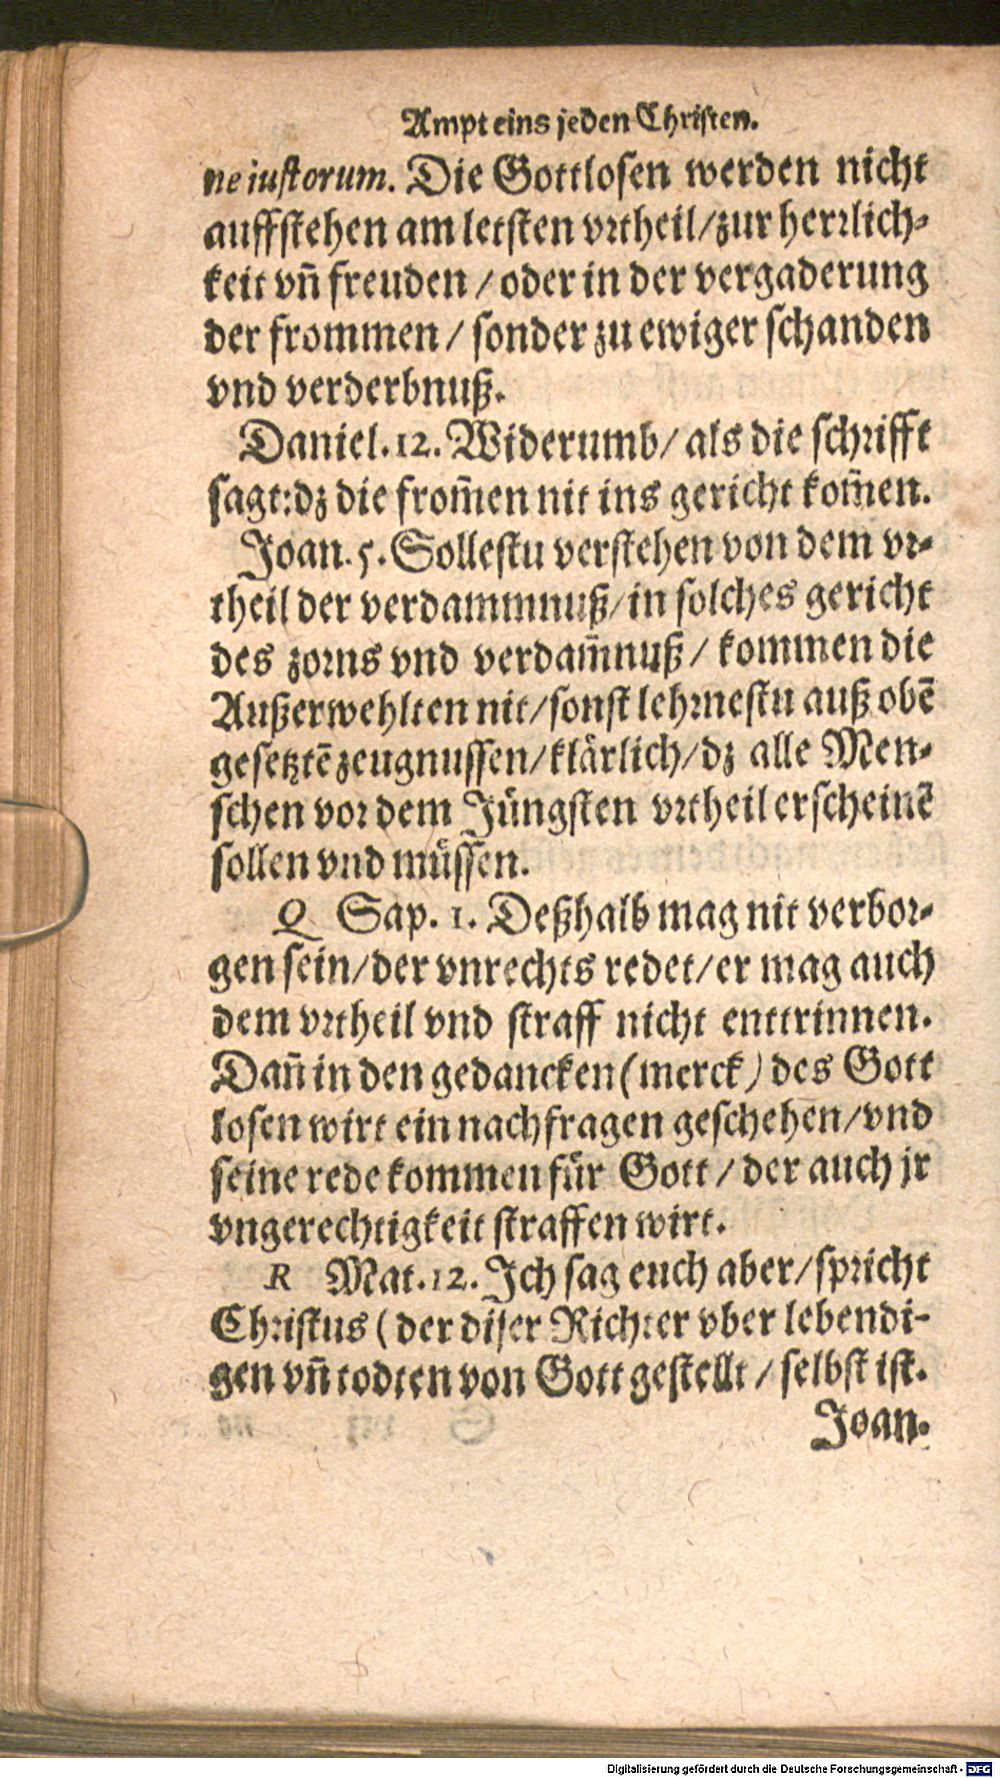 Ampt eins jeden Christen.
ne iustorum. Die Gottlosen werden nicht
auffstehen am letsten vrtheil/zur herrlich-
keit vñ freuden / oder in der vergaderung
der frommen / sonder zu ewiger schanden
vnd verderbnuß.
Daniel. 12. Widerumb/ als die schrifft
sagt: dz die from̃en nit ins gericht kom̃en.
Joan. 5. Sollestu verstehen von dem vr-
theil der verdammnuß/in solches gericht
des zorns vnd verdam̃nuß / kommen die
Außerwehlten nit/sonst lehrnestu auß obẽ
gesetztẽ zeugnussen/klärlich/dz alle Men-
schen vor dem Jüngsten vrtheil erscheinẽ
sollen vnd müssen.
Q Sap. 1. Deßhalb mag nit verbor-
gen sein/der vnrechts redet/er mag auch
dem vrtheil vnd straff nicht enttrinnen.
Dañ in den gedancken (merck) des Gott
losen wirt ein nachfragen geschehen/vnd
seine rede kommen für Gott / der auch jr
vngerechtigkeit straffen wirt.
R Mat. 12. Ich sag euch aber/spricht
Christus (der diser Richter vber lebendi-
gen vñ todten von Gott gestellt / selbst ist.
Joan.
Digitalisierung gefördert durch die Deutsche Forschungsgemeinschaft - DFG